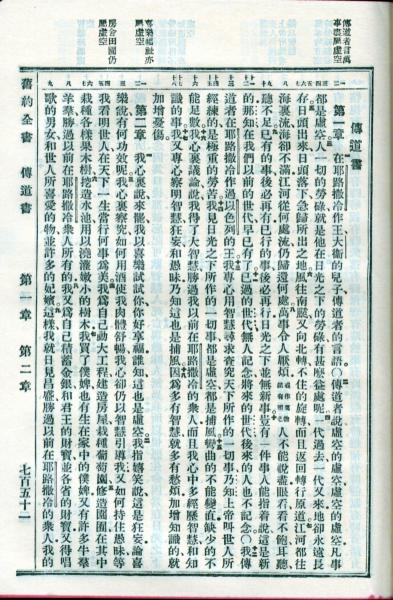 傳道者言萬
事悉屬虛空
尊榮福祉亦
屬虛空
房舍田園仍
屬虛空
傳道書
第一章 在耶路撒冷作王大衞的兒子傳道者的言語〇傳道者說虛空的虛空虛空的虛空凡事
都是虛空人一切的勞碌就是他在日光之下的勞碌有甚麽益處呢一代過去一代又來地卻永遠長
存日頭出來日頭落下急歸所出之地風往南颳又向北轉不住的旋轉而且返回轉行原道江河都往
海裏流海卻不滿江河從何處流仍歸還何處萬事令人厭煩人不能說盡眼看看不飽耳聽
聽不足已有的事後必再有已行的事後必再行日光之下並無新事豈有一件事人能指着說這是新
的那知在我們以前的世代早已有了已過的世代無人記念將來的世代後來的人也不記念〇我傳
道者在耶路撒冷作過以色列的王我專心用智慧尋求查究天下所作的一切事乃知上帝叫世人所
經練的是極重的勞苦我見日光之下所作的一切事都是虛空都是捕風彎曲的不能變直缺少的不
能足數我心裏議論說我得了大智慧勝過我以前在耶路撒冷的衆人而且我心中多經歷智慧和知
識的事我又專心察明智慧狂妄和愚昧乃知這也是捕風因爲多有智慧就多有愁煩加增知識的就
加增憂傷
第二章 我心裏說來罷我以喜樂試試你你好享福誰知這也是虛空我指嬉笑說這是狂妄論喜
樂說有何功效呢我心裏察究如何用酒使我肉體舒暢我心卻仍以智慧引導我又如何持住愚昧等
我看明世人在天下一生當行何事爲美我爲自己動大工程建造房屋栽種葡萄園修造園囿在其中
栽種各樣果木樹挖造水池用以澆灌嫩小的樹木我買了僕婢也有生在家中的僕婢又有許多牛羣
羊羣勝過以前在耶路撒冷衆人所有的我又爲自己積蓄金銀和君王的財寶並各省的財寶又得唱
歌的男女和世人所喜愛的物並許多的妃嬪這樣我就日見昌盛勝過以前在耶路撒冷的衆人我的
舊約全書 傳道書 第一章 第二章 七百五十一